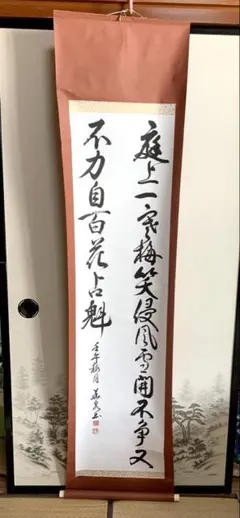 庭上一寒梅笑侵風雪開不争又
不力自百花占魁
壬午
月